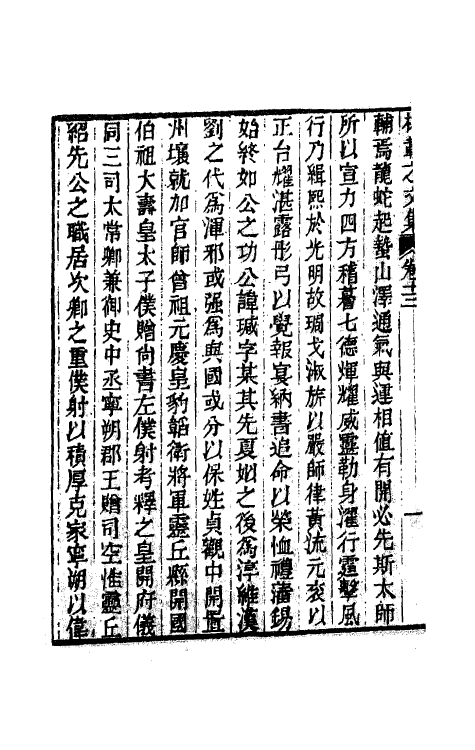 權載之文集 卷十三 一
輔焉龍蛇起蟄山澤通氣與運相值有開必先斯太師
所以宣力四方稽蓍七德煇耀威靈勒身濯行霆擊風
行乃緝熙於光明故琱戈淑旂以嚴師律黃流元衮以
正台耀湛露彤弓以覺報宴納書追命以榮恤禮藩錫
始終如公之功公諱瑊字某其先夏姒之後爲淳維漢
劉之代爲渾邪或强爲與國或分以保姓貞觀中開置
州壤就加官師曾祖元慶皇豹韜衛將軍靈丘縣開國
伯祖大壽皇太子僕贈尙書左僕射考釋之皇開府儀
同三司太常卿兼御史中丞寧朔郡王贈司空惟靈丘
紹先公之職居次卿之重僕射以積厚克家寧朔以偉